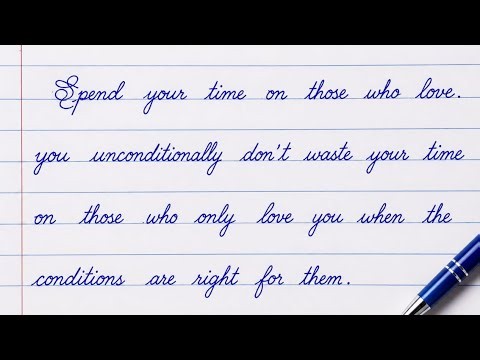 Spend your time on those who love.
you unconditionally don't waste your time
on those who only love you when the
conditions are right for them.